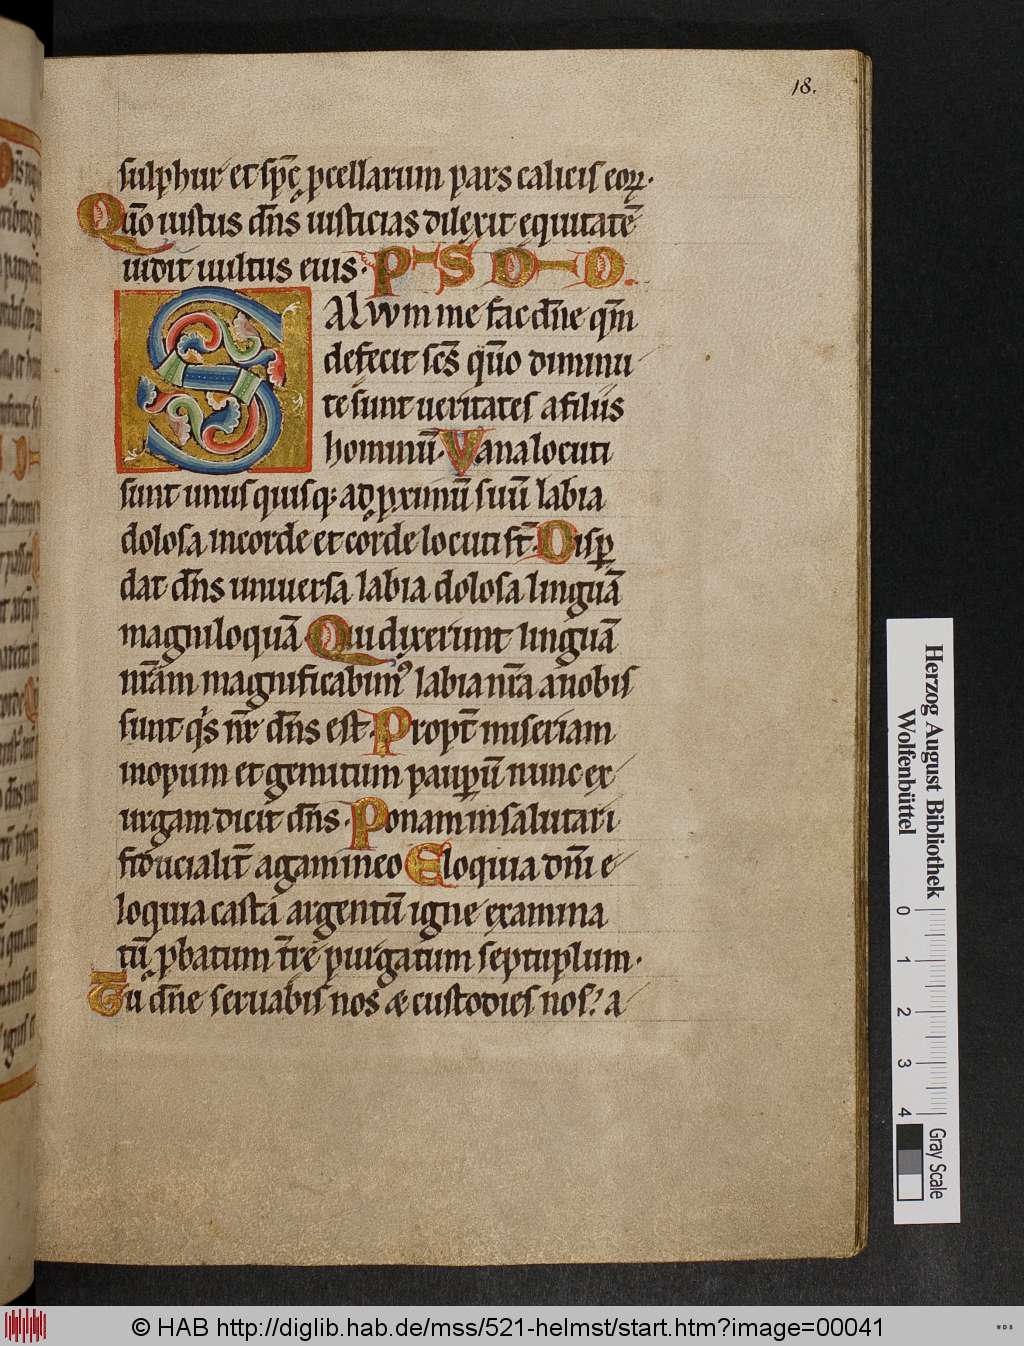 18.
sulphur et sp̄c p̱cellarum pars calicis eoꝝ·
Qm̄o iustus dn̄s iusticias dilexit equitatē
uidit uultus eius· PS D D.
SALVVM me fac dn̄e qm̄
defecit sc̄s qm̄o diminu
te sunt ueritates a filiis
hominū· Vana locuti
sunt unus quisq; ad ꝓximū suū labia
dolosa in corde et corde locuti st̄· Disꝑ
dat dn̄s uniuersa labia dolosa linguā
magniloquā Qui dixerunt linguā
nr̄am magnificabimꝰ labia nr̄a a nobis
sunt qͥs nr̄ dn̄s est· Propt̄ miseriam
inopum et gemitum pauꝑū nunc ex
urgam dicit dn̄s· Ponam in salutari
fiducialit̄ agam in eo Eloquia dn̄i e
loquia casta argentū igne examina
tū ꝓbatum tr̄e purgatum septuplum·
Tu dn̄e seruabis nos & custodies nos: a
Herzog August Bibliothek
Wolfenbüttel
0 1 2 3 4
Gray Scale
© HAB http://diglib.hab.de/mss/521-helmst/start.htm?image=00041